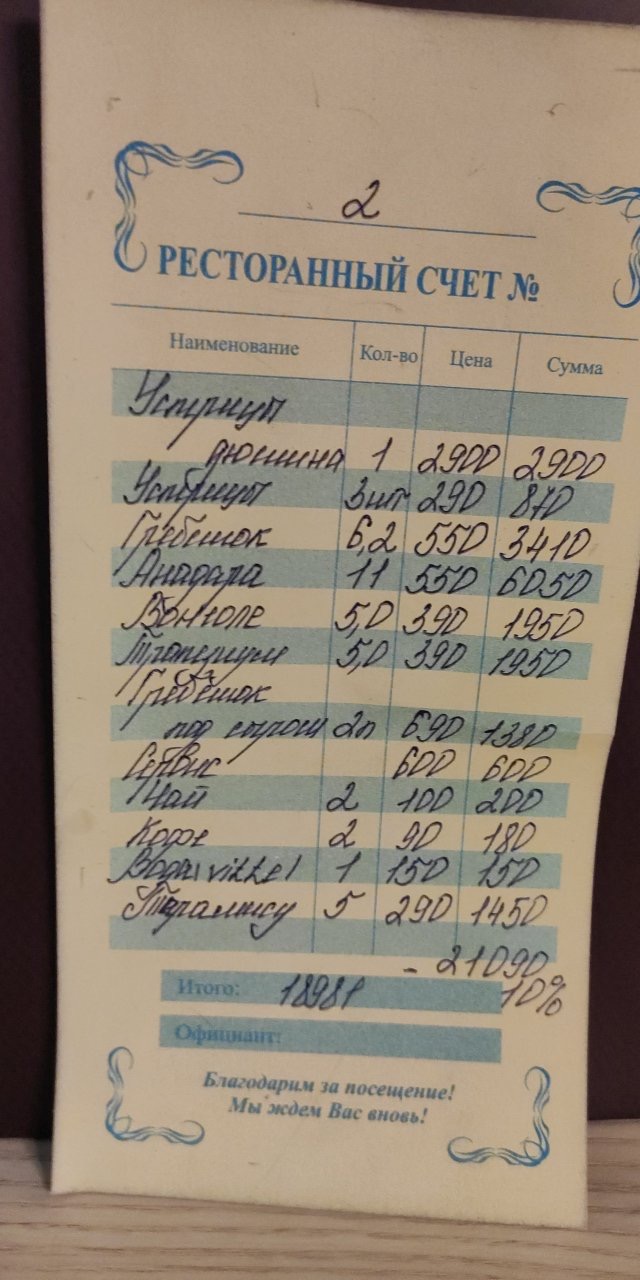 2
РЕСТОРАННЫЙ СЧЕТ №
Наименование Кол-во Цена Сумма
Устрицы
дюжина 1 2900 2900
Устрицы 3шт 290 870
Гребешок 6,2 550 3410
Анадара 11 550 6050
Вонголе 5,0 390 1950
5,0 390 1950
Гребешок
под соусом 2п 690 1380
Сервис 600 600
Чай 2 100 200
Кофе 2 90 180
Вода 1 150 150
Тирамису 5 290 1450
- 21090
Итого: 18981 10%
Официант:
Благодарим за посещение!
Мы ждем Вас вновь!